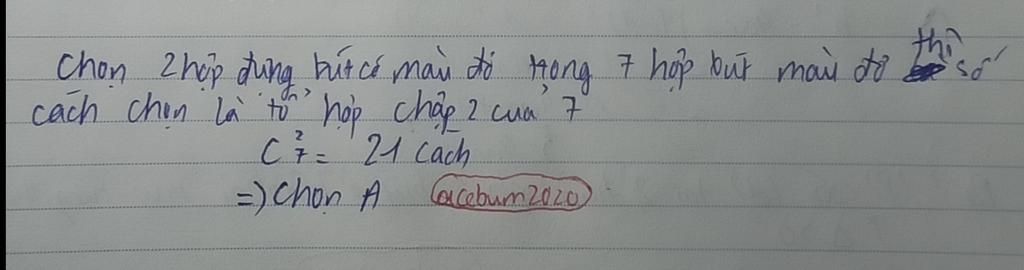 Chọn 2 hộp đựng bút có màu đỏ trong 7 hộp bút màu đỏ thì số
cách chọn là tổ hợp chập 2 của 7
C²₇ = 21 cách
=) Chọn A acebum2020